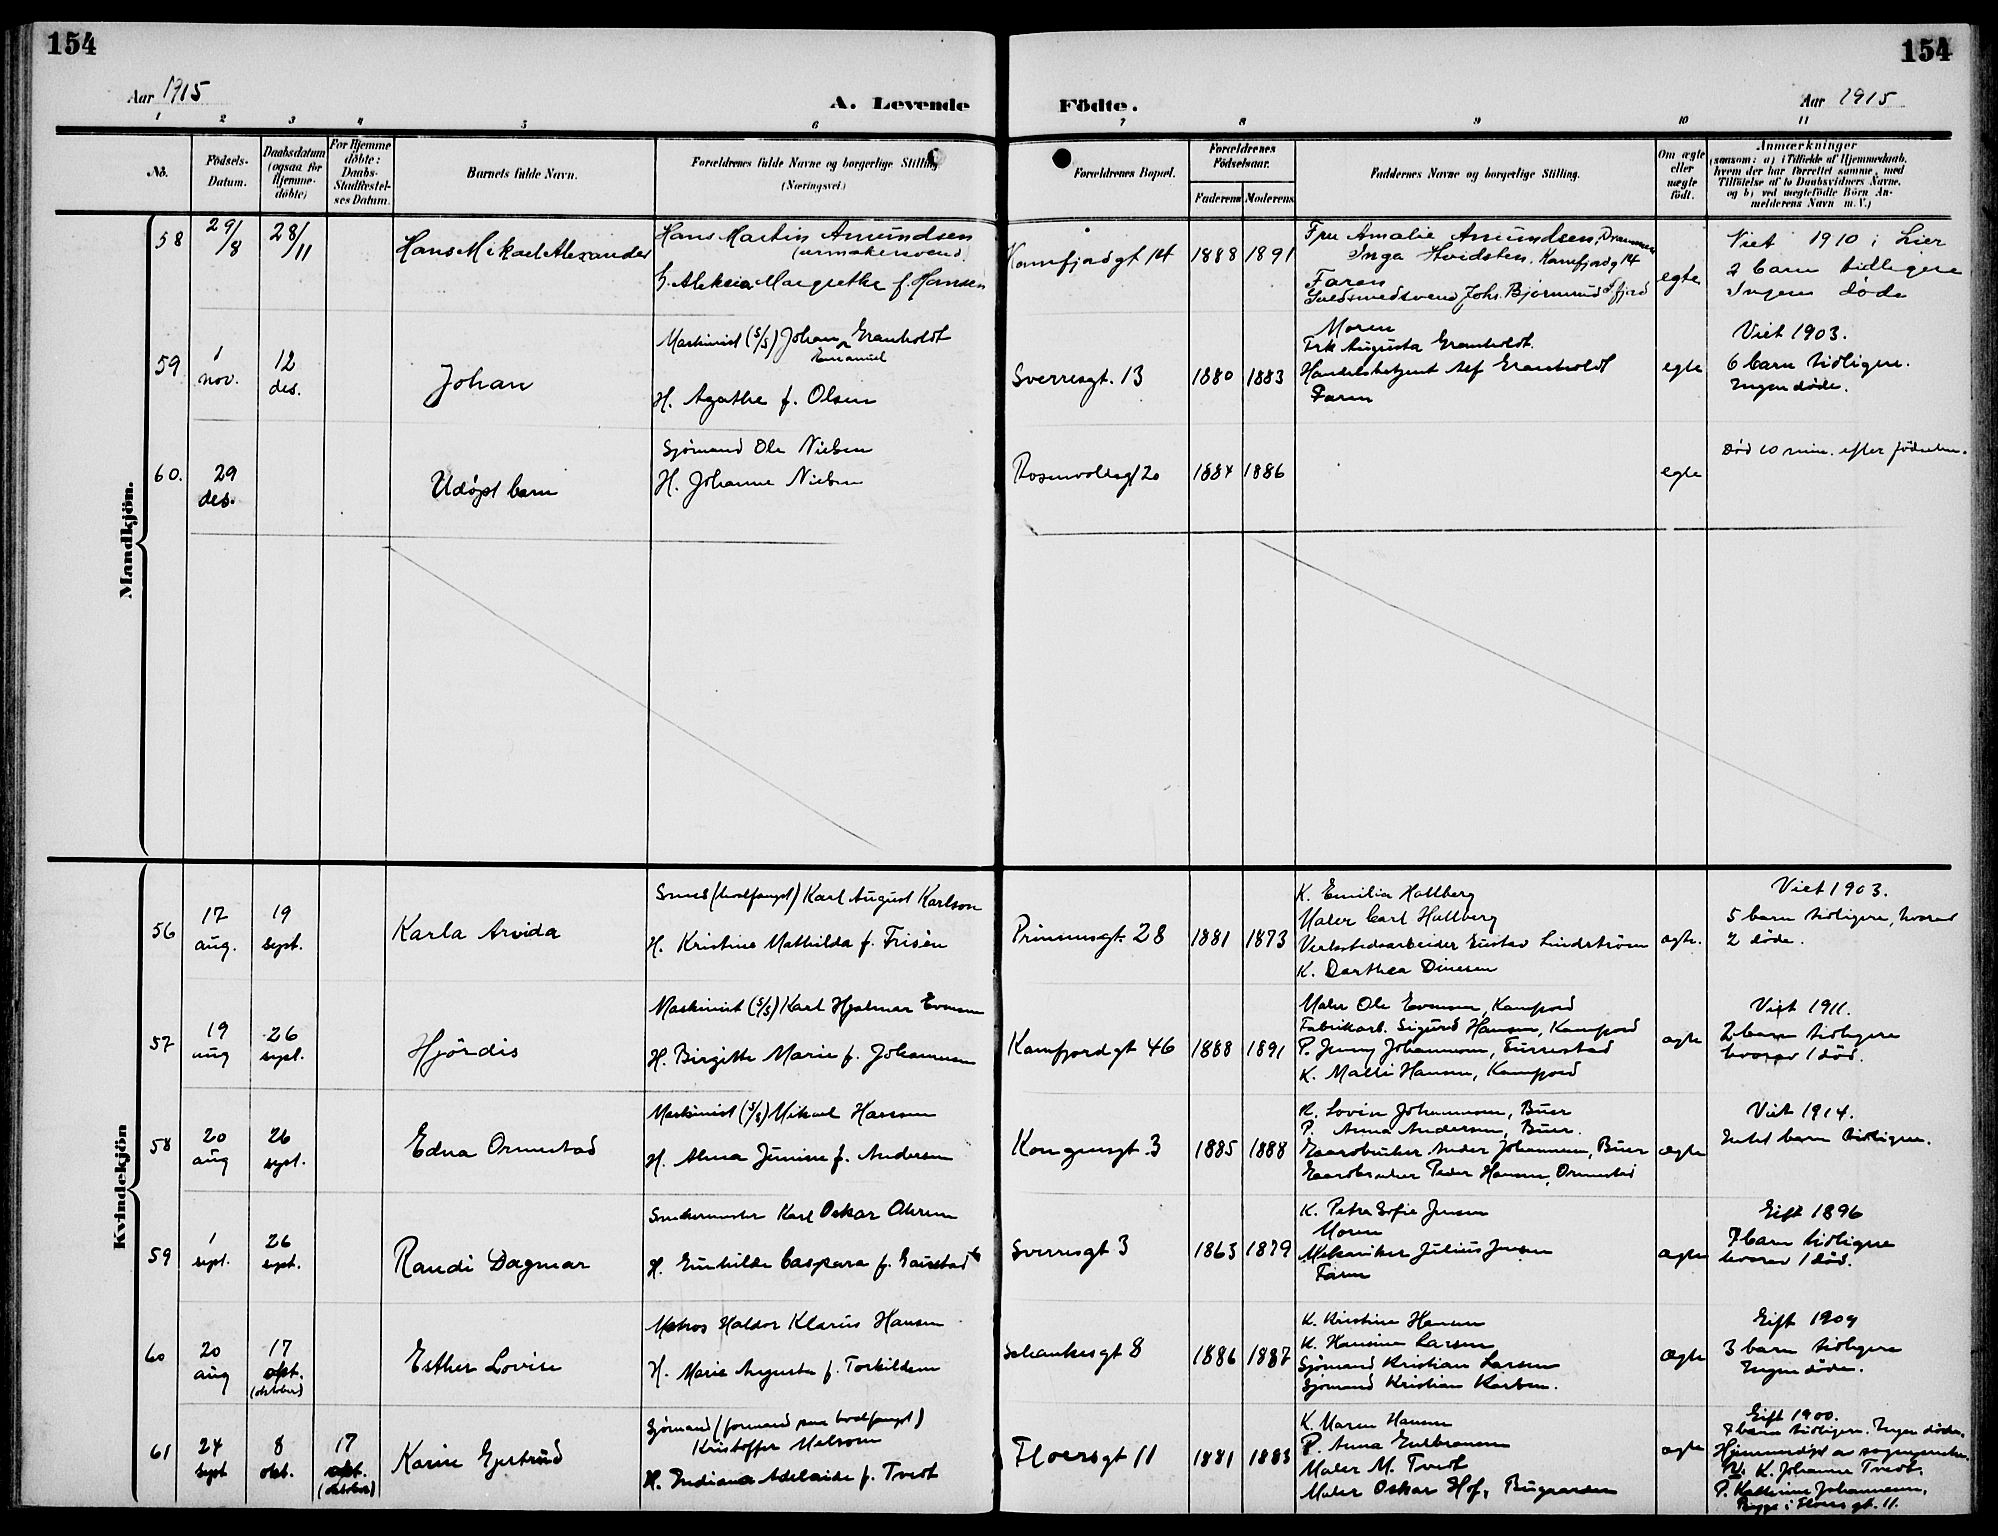 154
154
Aar 1915
A. Levende
Födte.
Aar 1915
1 2 3 4 5 6 7 8 9 10 11
No.
Födsels-Datum.
Daabsdatum (ogsaa for Hjemme-döbte)
For Hjemme döbte: Daabs-Stadfæstel-ses Datum.
Barnets fulde Navn.
Forældrenes fulde Navne og borgerlige Stilling
(Næringsvei.)
Forældrenes Bopæl.
Forældrenes Födselsaar.
Faderens Moderens
Faddernes Navne og borgerlige Stilling.
Om ægte eller uægte født.
Anmærkninger
(saasom: a) i Tilfælde af Hjemmedaab, hvem der har forrettet samme, med Tilföielse af to Daabsvidners Navne, og b) ved uægtefödte Börn An-melderens Navn m. V.)
Mandkjön.
58
29/8
28/11
Hans Mikael Alexander
Hans Martin Amundsen
(urmakersvend)
H. Aleksia Margrethe f. Hansen
Kamfjordgt 14
1888 1891
Fru Amalie Amundsen, Drammen
Inga Hvidsten, Kamfjordg 14
Faren
Guldsmedsvend Johs. Bjørnrud
egte
Viet 1910 i Lier
2 barn tidligere
Ingen døde
59
1 nov.
12 des.
Johan
Maskinist (s/s) Johan Emanuel Granholdt
H. Agathe f. Olsen
Sverresgt. 13
1880 1883
Moren
Frk Augusta Granholdt.
Handelsbetjent Alf Granholdt
Faren
egte
Viet 1903.
6 barn tidligere.
Ingen døde.
60.
29 des.
Udøpt barn
Sjømand Ole Nielsen
H. Johanne Nielsen
Rosenvoldsgt 20
1884 1886
egte
Død 10 min. efter fødselen.
Kvindekjön
56
17 aug.
19 sept.
Karla Arvida
Smed (hvalfangst) Karl August Karlson
H. Kristine Mathilda f. Frisèn
Prinsensgt. 28
1881 1873
K. Emilia Hallberg
Maler Carl Hallberg
Verkstedsarbeider Gustav Lindstrøm
K. Dorthea Dinesen
ægte.
Viet 1903.
5 barn tidligere, hvorav
2 døde.
57
19 aug
26 sept.
Hjördis
Maskinist (s/s) Karl Hjalmar Evensen
H. Birgitte Marie f. Johannessen
Kamfjordgt 46
1888 1891
Maler Ole Evensen, Kamfjord
Fabrikarb. Sigurd Hansen, Kamfjord
P. Jenny Johannessen, Furrestad
K. Malli Hansen, Kamfjord
ægte
Viet 1911.
2 barn tidligere
hvorav 1 død.
58
20 aug
26 sept.
Edna Ormestad
Maskinist (s/s) Mikael Hansen
H. Alma Junise f. Andersen
Kongensgt. 3
1885 1888
K. Lovise Johannessen, Buer
P. Anna Andersen, Buer.
Gaardbruker Anders Johannessen, Buer
Gaardbruker Peder Hansen, Ormestad
ægte
Viet 1914.
Intet barn tidligere.
59
1 sept.
26 sept.
Randi Dagmar
Snekkermester Karl Oskar Olsen
H. Gunhilda Caspara f. Gaustad
Sverresgt 3
1863 1879
K. Petra Sofie Jensen
Moren
Mekaniker Julius Jensen
Faren
ægte
Gift 1896
7 barn tidligere
hvorav 1 død.
60
20 aug
17 okt. (oktober)
Esther Lovise
Matros Haldor Klarius Hansen
H. Marie Augusta f. Torkildsen
Schankesgt 8
1886 1887
K. Kristine Hansen
K. Hansine Larsen
Sjømand Kristian Larsen
Sjømand Kristian Karlsen.
ægte
Gift 1909
3 barn tidligere
Ingen døde.
61
24 sept
8 okt.
17 okt. (oktober)
Karin Gjertrud
Sjømand (formand paa hvalfangst)
Kristoffer Melsom
H. Indiana Adelaide f. Tvedt
Floersgt 11
1881 1883
K. Maren Hansen
P. Anna Gulbransen
Maler M. Tvedt
Maler Oskar Hof, Bugaarden
ægte
Gift 1900.
7 barn tidligere. Ingen døde.
Hjemmedøpt av sognepresten.
V: K. Johanne Tvedt,
P. Kathrine Johannessen,
Begge i Floersgt. 11.